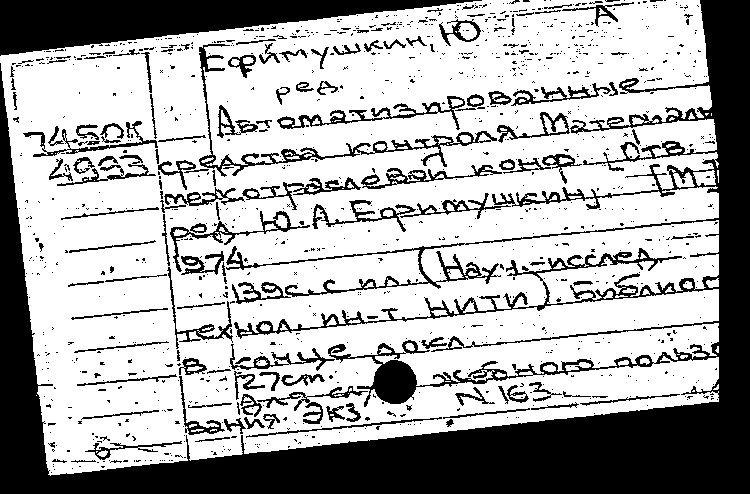 Ефимушкин, Ю А
ред.
7450К Автоматизированные
4993 средства контроля. Материалы
межотраслевой конф. [Отв.
ред. Ю.А. Ефимушкин] [М.]
1974.
139с. с ил. (Науч.-исслед.
технол. ин-т. НИТИ). Библиог
в конце докл.
27см.
Для слу жебного пользо
вания. Экз. N 163
6